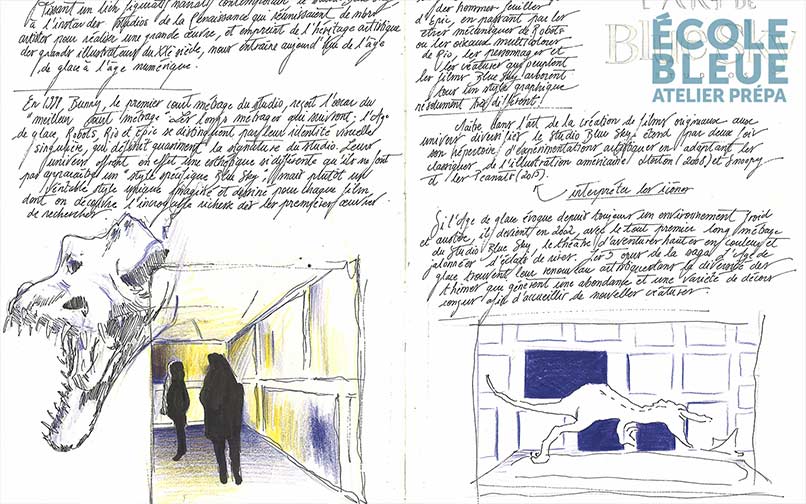 Vivant un lien figuratif narratif contemporain, le
à l'instar des studios de la Renaissance qui réunissaient de nombr
artistes pour réaliser une grande œuvre, et empreint de l'héritage artistique
des grands illustrateurs du XXe siècle, nous entraîne aujourd'hui de l'âge
de glace à l'âge numérique.
En 1998, Bunny, le premier court métrage du studio, reçoit l'oscar du
"meilleur court métrage". Les longs métrages qui suivent, l'Age
de glace, Robots, Rio et Epic se distinguent par leur identité visuelle
singulière, qui définit quasiment la signature du studio. Leurs
univers offrent en effet une esthétique si différente qu'ils ne font
pas apparaître un "style spécifique Blue Sky", mais plutôt un
véritable style unique imaginé et dessiné pour chaque film
dont on décèle l'incroyable richesse dès les premières œuvres
de recherches
des hommes feuilles
d'Epic, en passant par les
êtres mécaniques de Robots
ou les oiseaux multicolores
de Rio, les personnages et
les créatures qui peuplent
les films Blue Sky arborent
tous un style graphique
résolument très différent!
L'ART DE
Blue Sky
ÉCOLE
BLEUE
ATELIER PRÉPA
Maître dans l'art de la création de films originaux aux
univers diversifiés le studio Blue Sky étend par deux fois
son répertoire d'expérimentations artistiques en adaptant les
classiques de l'illustration américaine Horton (2008) et Snoopy
et les Peanuts (2015).
interpréter les scènes
Si l'Age de glace évoque depuis toujours un environnement froid
et austère, il devient en 2002, avec le tout premier long métrage
du Studio Blue Sky, le théâtre d'aventures hautes en couleurs et
jalonnées d'éclats de rires. Les 5 opus de la saga d'Age de
glace trouvent leur renouveau artistique dans la diversité des
thèmes qui génèrent une abondance et une variété de décors
conçus afin d'accueillir de nouvelles créatures